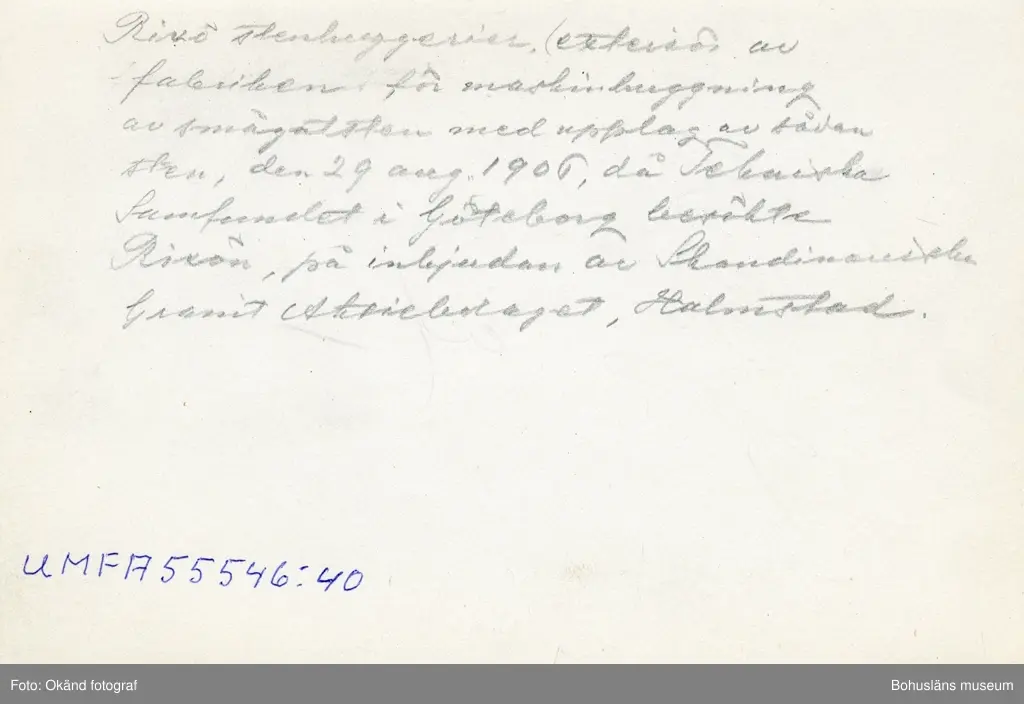 Rixö stenhuggerier, (exteriör av
fabriken för maskinhuggning
av smågatsten med upplag av sådan
sten, den 29 aug. 1906, då Tekniska
Samfundet i Göteborg besökte
Rixön, på inbjudan av Skandinaviska
Granit Aktiebolaget, Halmstad.
UMFA55546:40
Foto: Okänd fotograf
Bohusläns museum